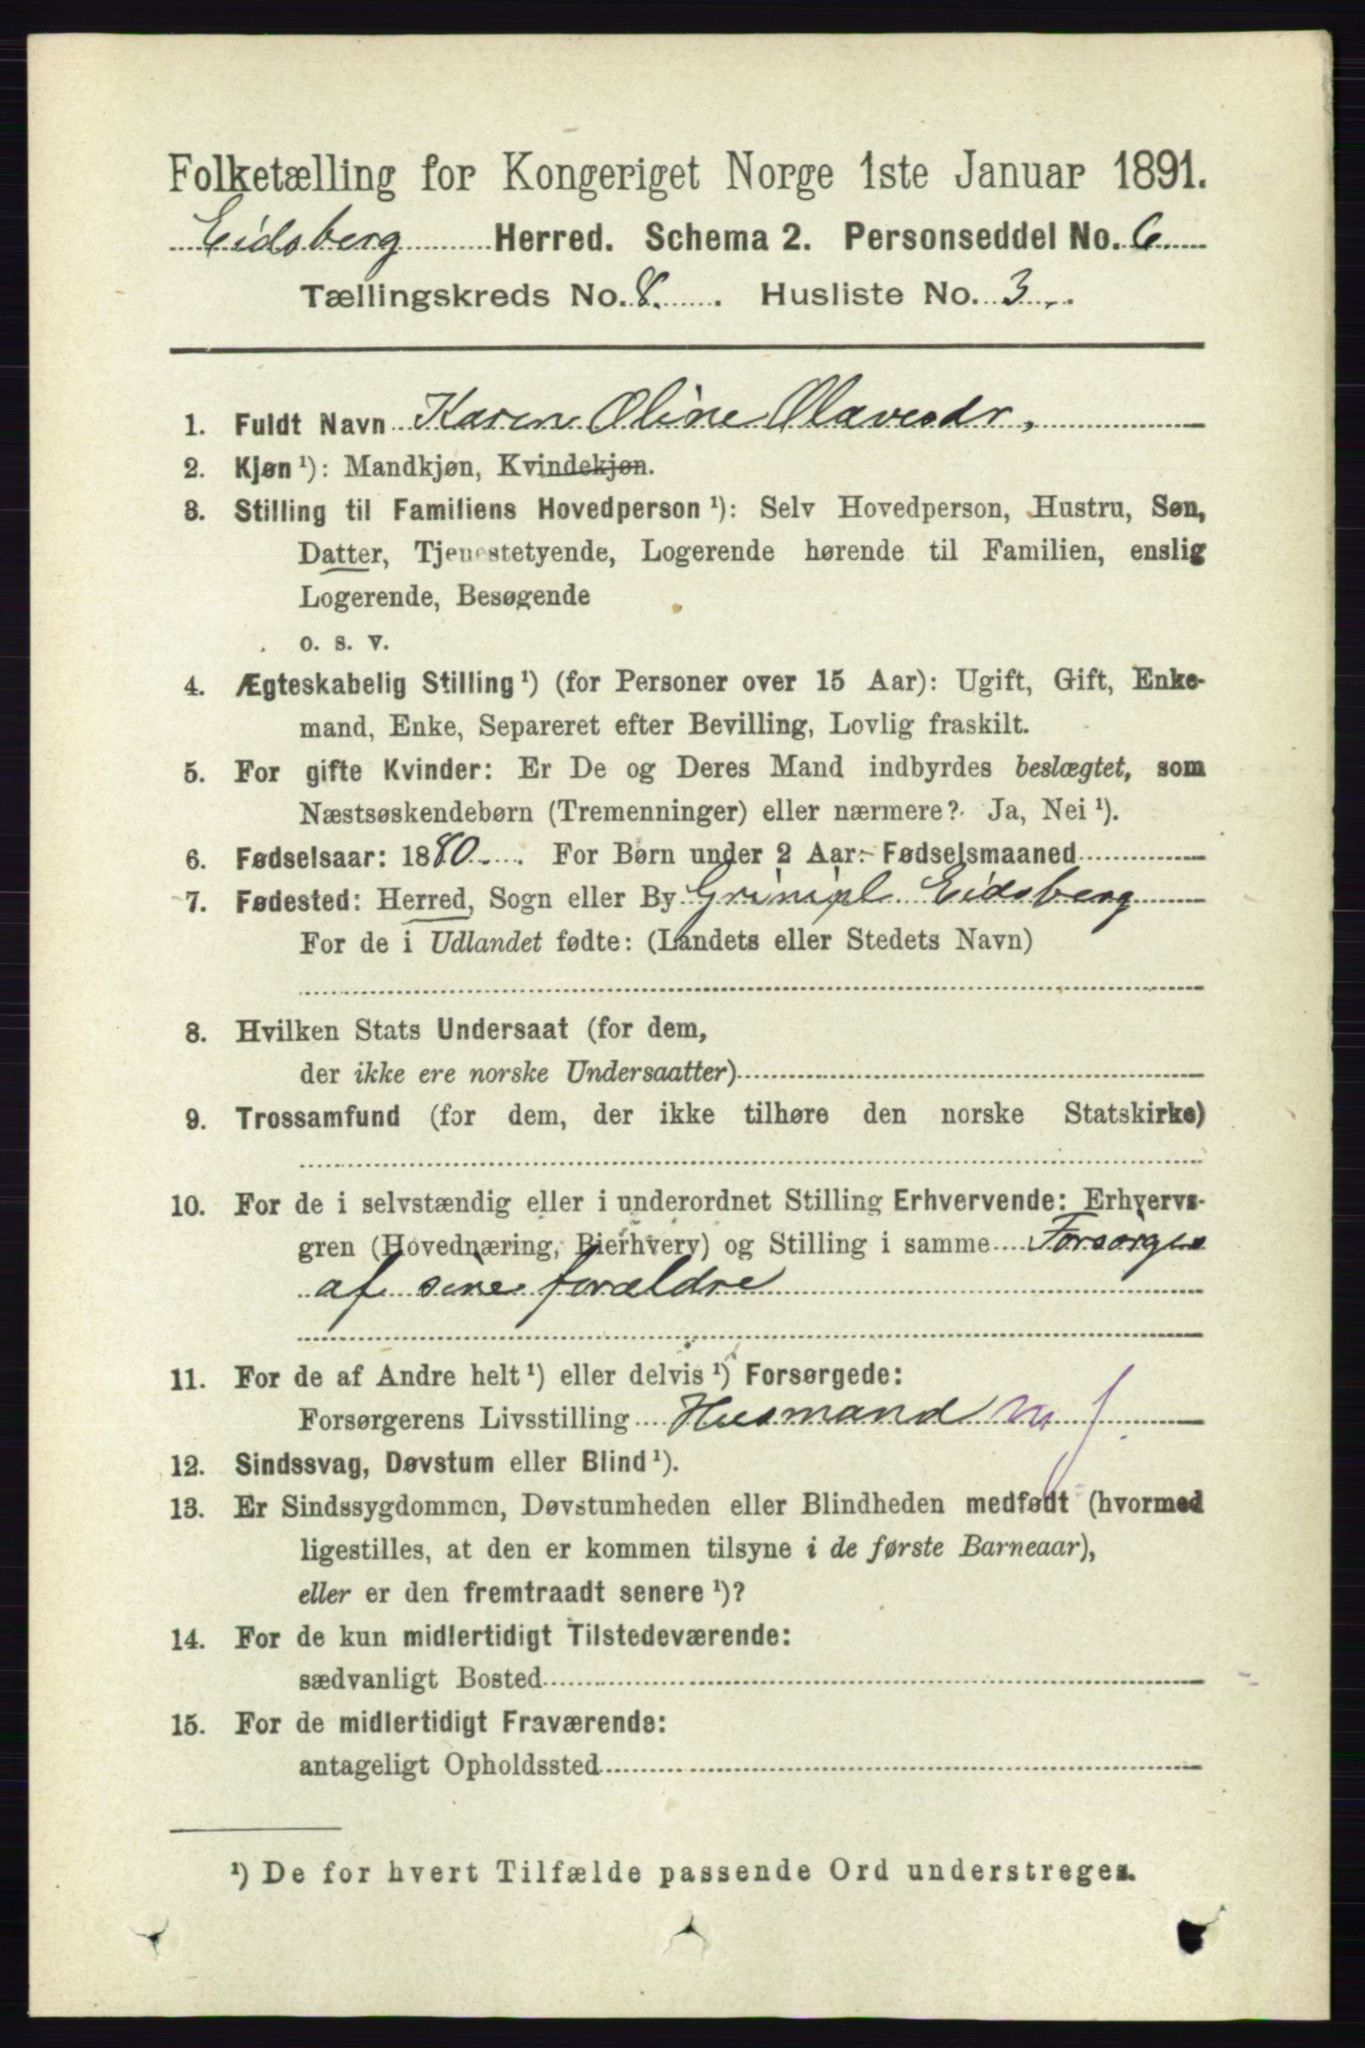 Folketælling for Kongeriget Norge 1ste Januar 1891.
Eidsberg Herred. Schema 2. Personseddel No. 6
Tællingskreds No. 8. Husliste No. 3
1. Fuldt Navn Karen Oline Olavesdr,
2. Kjøn ¹): Mandkjøn, Kvindekjøn.
3. Stilling til Familiens Hovedperson ¹): Selv Hovedperson, Hustru, Søn,
Datter, Tjenestetyende, Logerende hørende til Familien, enslig
Logerende, Besøgende
o. s. v.
4. Ægteskabelig Stilling ¹) (for Personer over 15 Aar): Ugift, Gift, Enke-
mand, Enke, Separeret efter Bevilling, Lovlig fraskilt.
5. For gifte Kvinder: Er De og Deres Mand indbyrdes beslægtet, som
Næstsøskendebørn (Tremenninger) eller nærmere? Ja, Nei ¹).
6. Fødselsaar: 1880. For Børn under 2 Aar: Fødselsmaaned
7. Fødested: Herred, Sogn eller By Eidsberg
For de i Udlandet fødte: (Landets eller Stedets Navn)
8. Hvilken Stats Undersaat (for dem,
der ikke ere norske Undersaatter)
9. Trossamfund (for dem, der ikke tilhøre den norske Statskirke)
10. For de i selvstændig eller i underordnet Stilling Erhvervende: Erhvervs-
gren (Hovednæring, Bierhverv) og Stilling i samme Forsørges
af sine forældre
11. For de af Andre helt ¹) eller delvis ¹) Forsørgede:
Forsørgerens Livsstilling Husmand m j
12. Sindssvag, Døvstum eller Blind ¹).
13. Er Sindssygdommen, Døvstumheden eller Blindheden medfødt (hvormed
ligestilles, at den er kommen tilsyne i de første Barneaar),
eller er den fremtraadt senere ¹)?
14. For de kun midlertidigt Tilstedeværende:
sædvanligt Bosted
15. For de midlertidigt Fraværende:
antageligt Opholdssted
¹) De for hvert Tilfælde passende Ord understreges.